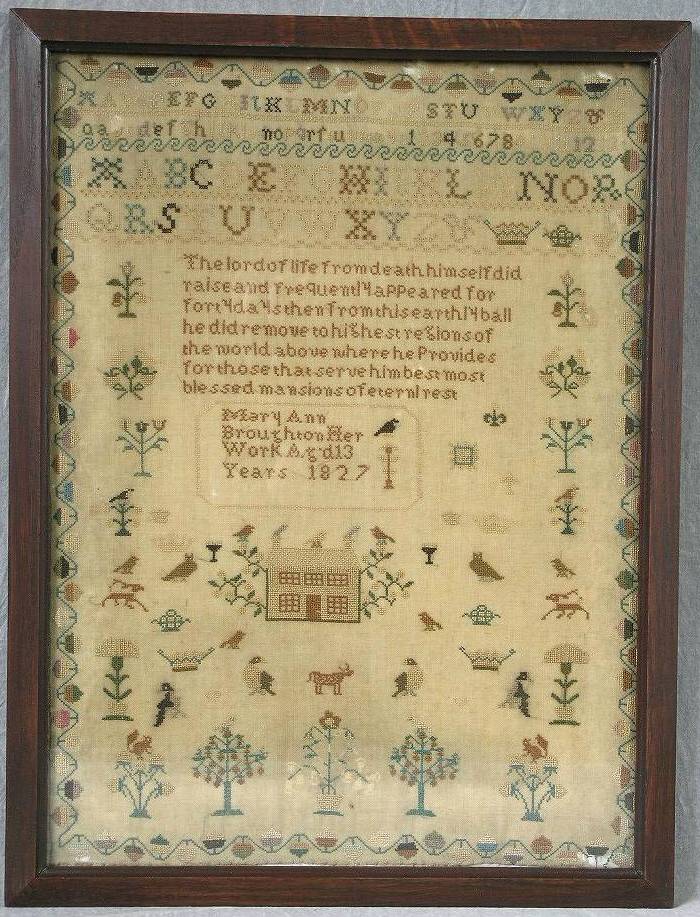 EFG KLMN STU WXYZ
def h nopqrfu 1 45678 12
ABC EFGHI KL NOR
QRSTU XYZ
The lord of life from death himself did
raise and frequently appeared for
forty days then from this earthly ball
he did remove to highest regions of
the world above where he Provides
for those that serve him best most
blessed mansions of eternl rest
Mary Ann
Broughton Her
Work Agd 13
Years 1827